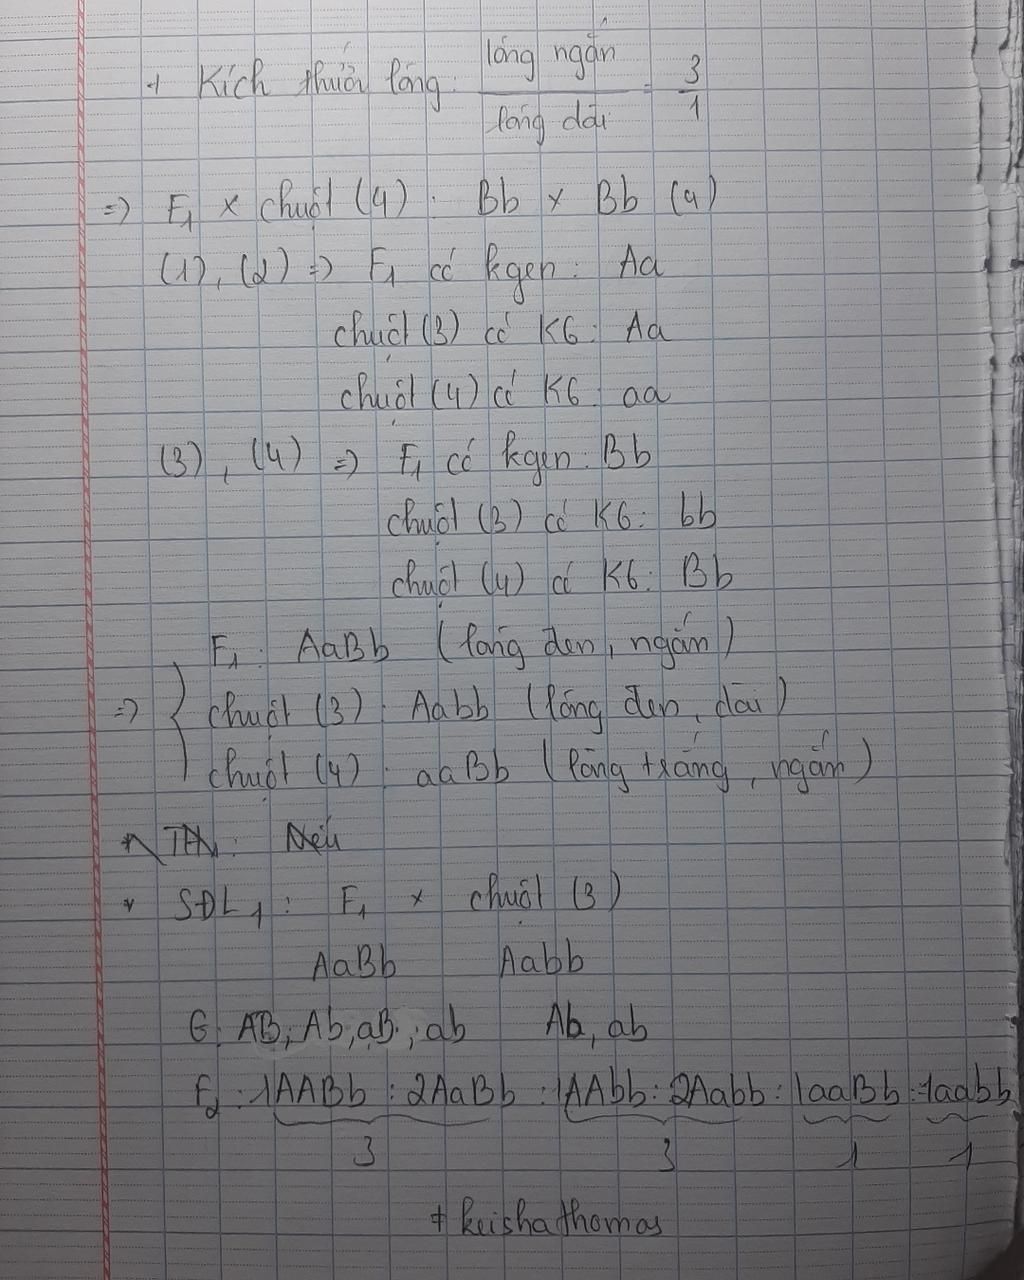 + Kích thước lông: lông ngắn / lông dài = 3/1
=> F1 x chuột (4): Bb x Bb (4)
(1), (2) => F1 có kgen: Aa
chuột (3) có KG: Aa
chuột (4) có KG: aa
(3), (4) => F1 có kgen: Bb
chuột (3) có KG: bb
chuột (4) có KG: Bb
F1: AaBb (lông đen, ngắn)
=> { chuột (3): Aabb (lông đen, dài)
chuột (4): aaBb (lông trắng, ngắn)
Nếu
* SĐL1: F1 x chuột (3)
AaBb Aabb
G: AB; Ab, aB; ab Ab, ab
F2: 1AABb : 2AaBb : 1AAbb : 2Aabb : 1aaBb : 1aabb
3 3 1 1
+ keishathomas